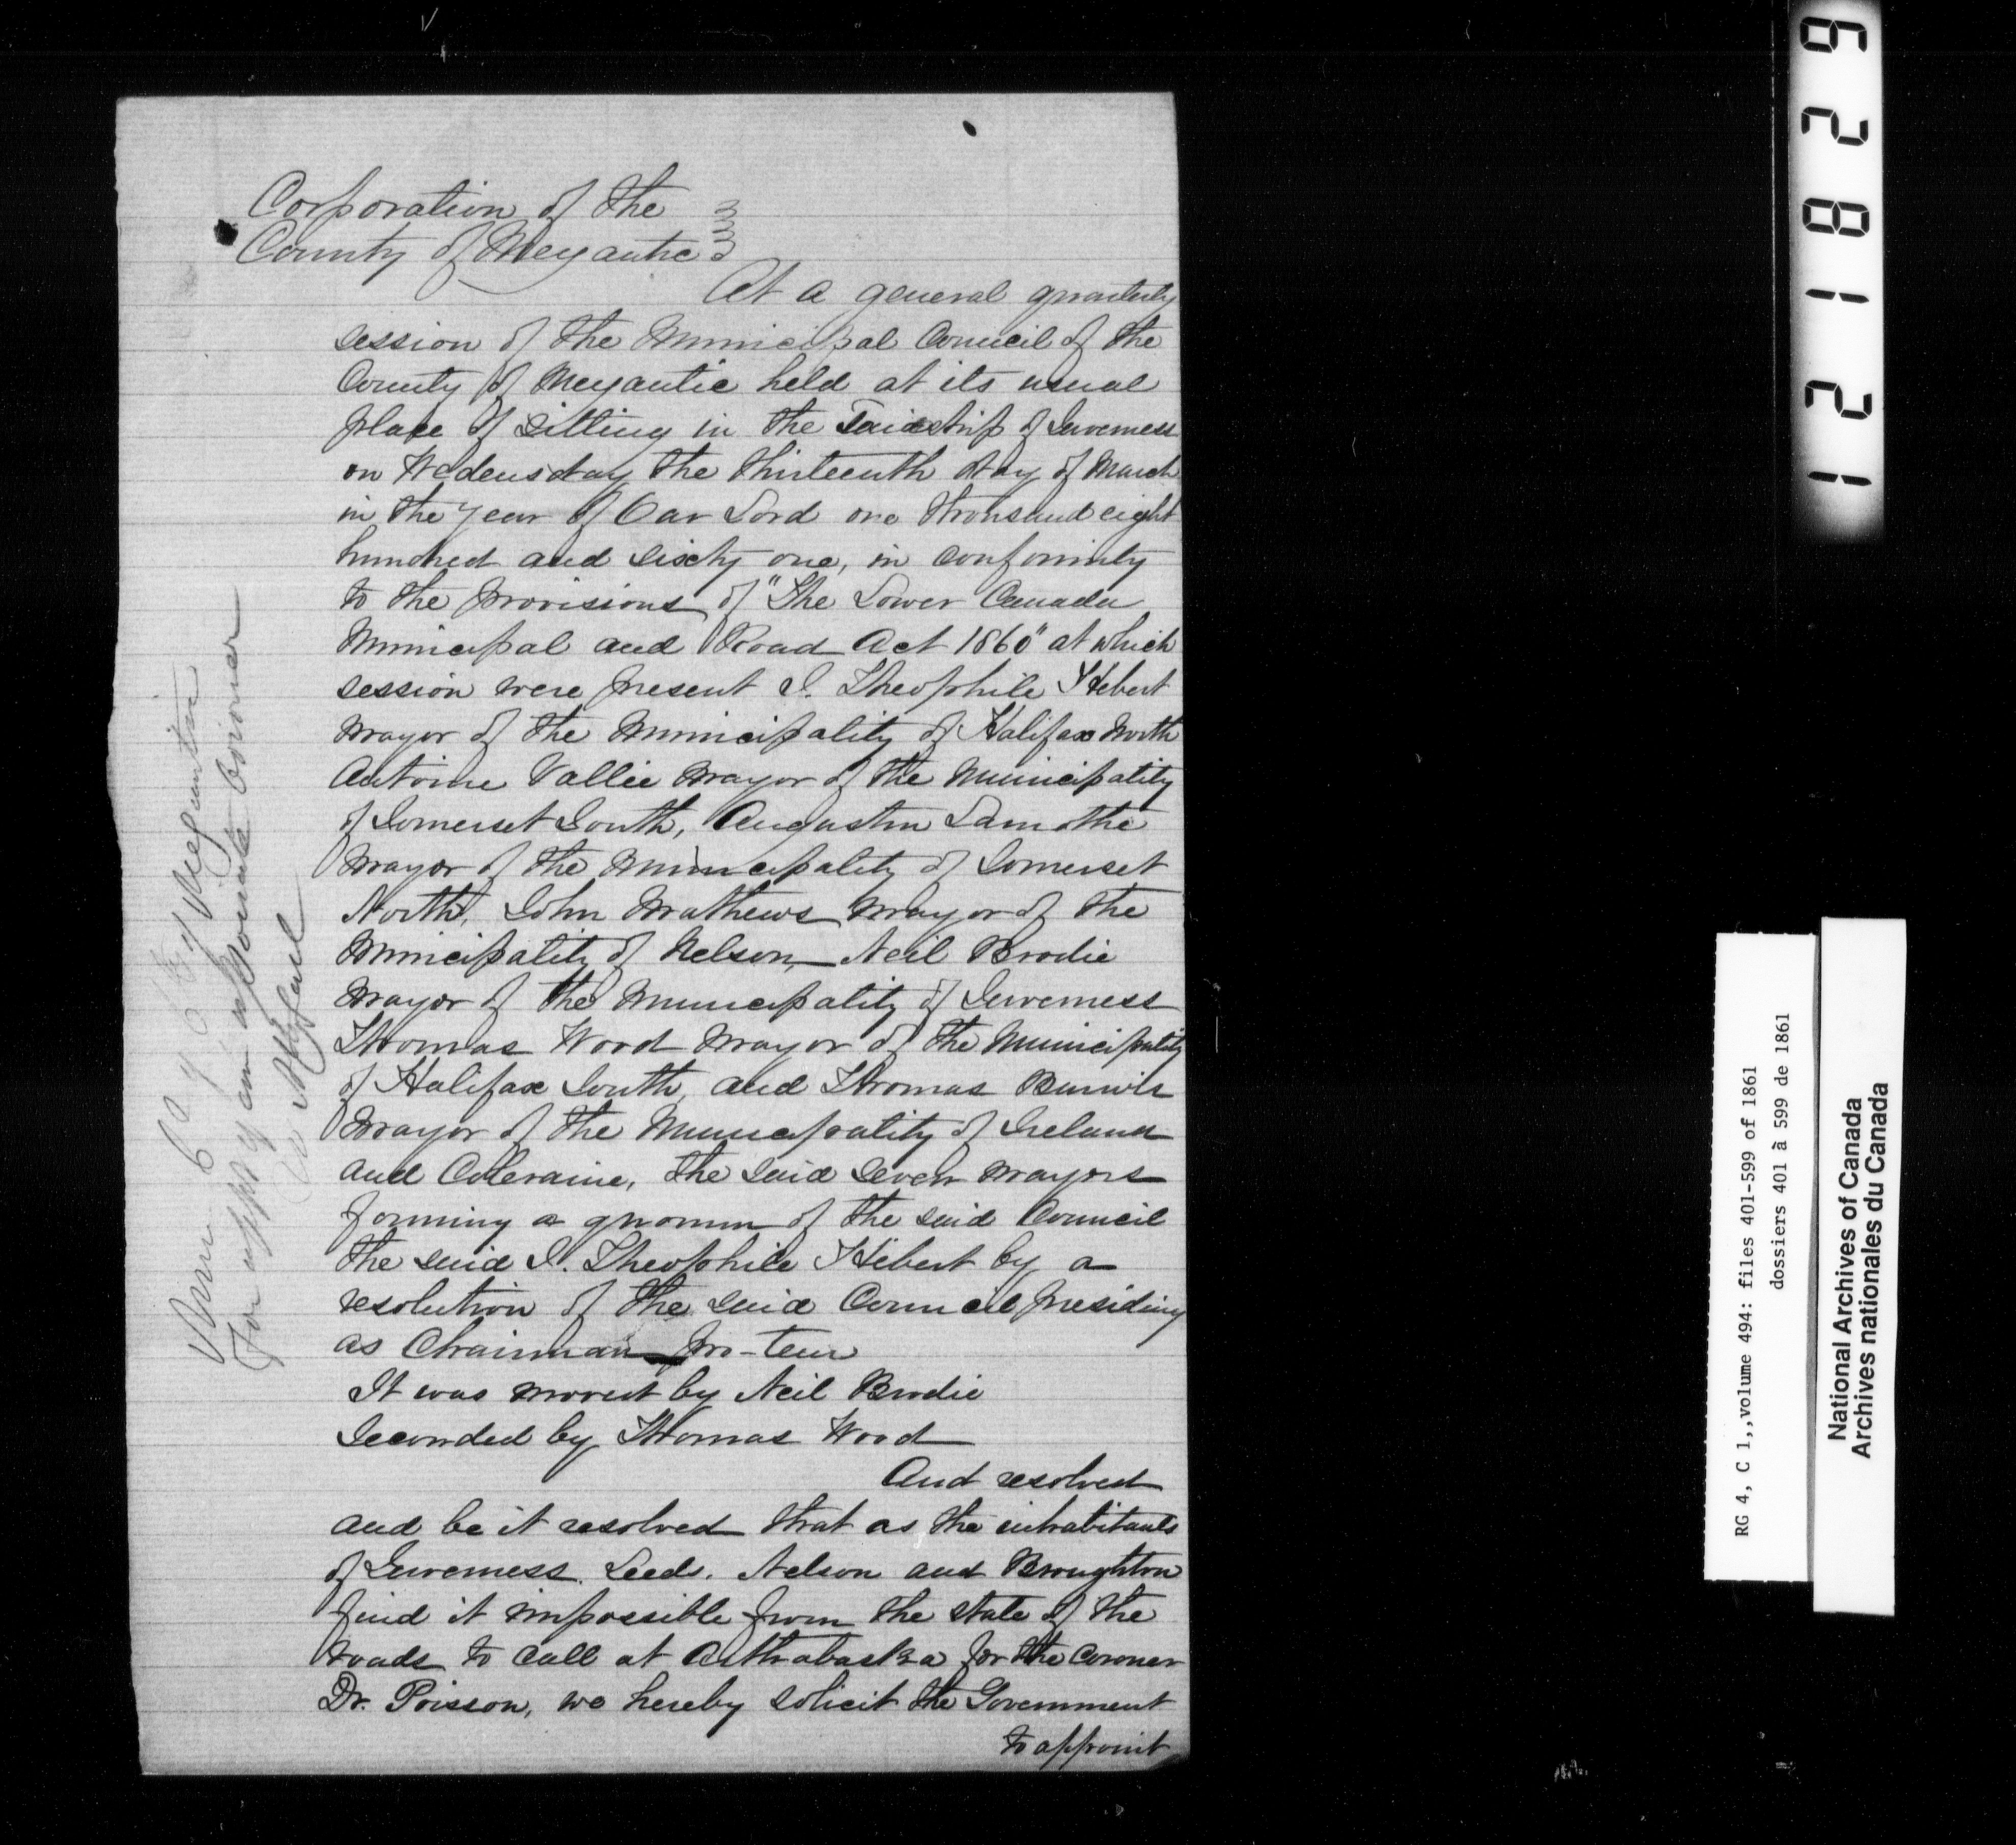 Corporation of the
County of Megantic
At a general quarterly
session of the Municipal Council of the
County of Megantic held at its usual
place of sitting in the Township of Inverness
on Wedensday the thirteenth day of March
in the year of Our Lord one thousand eight
hundred and sixty one, in conformity
to the provisions of "The Lower Canada
Municipal and Road Act 1860" at which
session were present I. Theophile Hebert
Mayor of the Municipality of Halifax North
Antoine Vallée Mayor of the Municipality
of Somerset South, Augustin Lamothe
Mayor of the Municipality of Somerset
North, John Mathews Mayor of the
Municipality of Nelson, Neil Brodie
Mayor of the Municipality of Inverness
Thomas Wood Mayor of the Municipality
of Halifax South, and Thomas
Mayor of the Municipality of Ireland
and Coleraine, the said seven mayors
forming a quorum of the said Council
the said I. Theophile Hébert by a
resolution of the said Council presiding
as Chairman pro-tem
It was moved by Neil Brodie
Seconded by Thomas Wood
And resolved
and be it resolved that as the inhabitants
of Inverness. Leeds. Nelson and Broughton
find it impossible from the state of the
roads to call at Arthabaska for the coroner
Dr. Poisson, we hereby solicit the Government
to appoint
Mun Co of Megantic
For appt of an associate coroner
121829
RG 4, C 1,,volume 494: files 401-599 of 1861
dossiers 401 à 599 de 1861
National Archives of Canada
Archives nationales du Canada